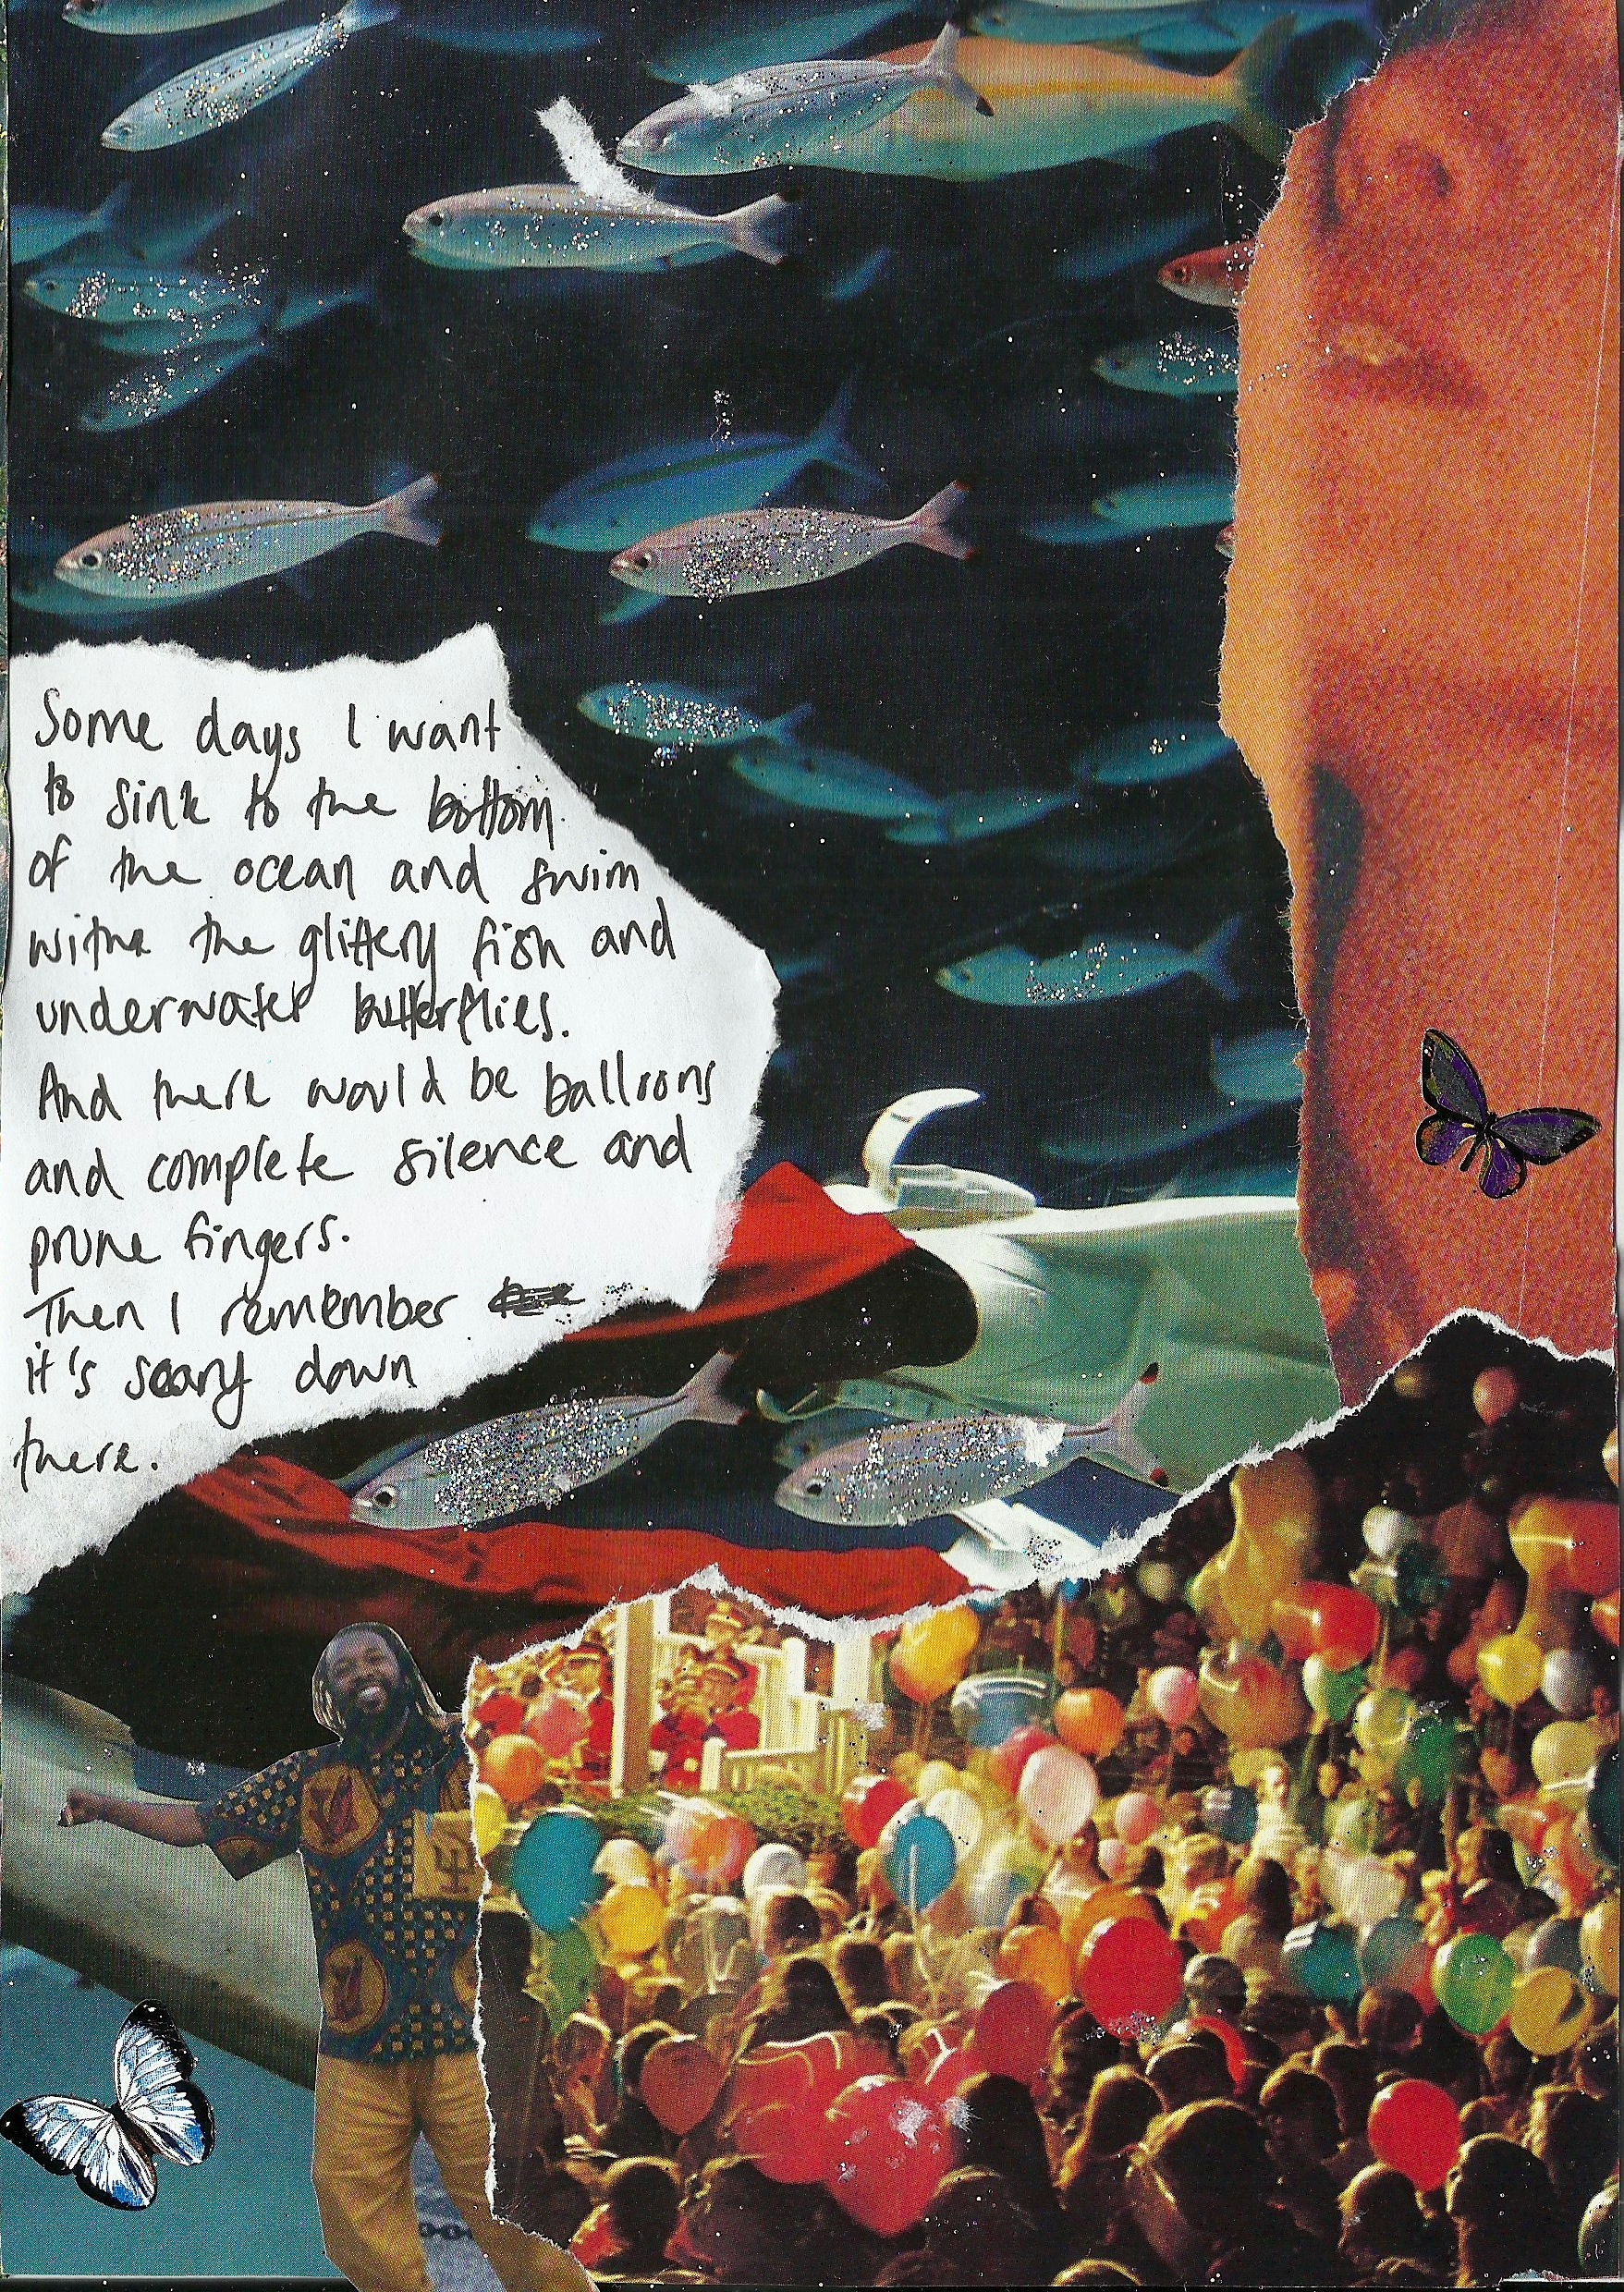 Some days I want
to sink to the bottom
of the ocean and swim
with the glittery fish and
underwater butterflies.
And there would be balloons
and complete silence and
prune fingers.
Then I remember
it's scary down
there.